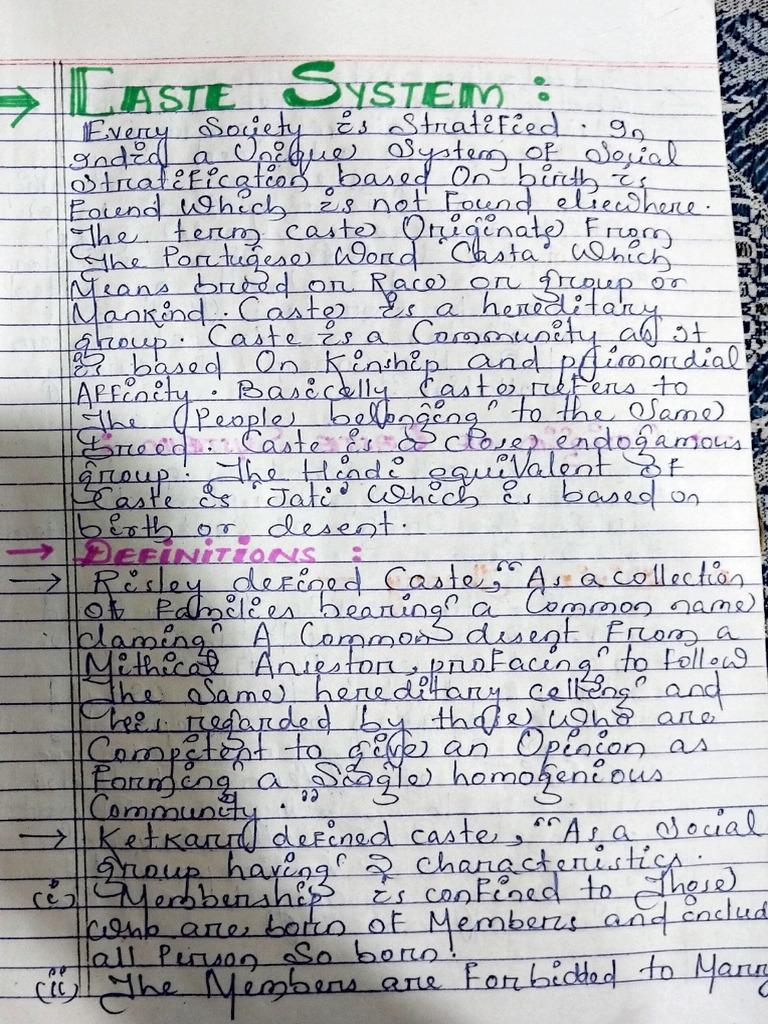 → CASTE SYSTEM :
Every Society is Stratified. In
India a Unique System of Social
Stratification based On birth is
Found Which is not Found elsewhere.
The term caste Originate From
The Portugese Word 'Casta' Which
Means breed or Race or group or
Mankind. Caste is a hereditary
group. Caste is a Community as it
is based On Kinship and primordial
Affinity. Basically Caste refers to
The People belonging to the Same
Breed. Caste is a close endogamous
group. The Hindi equivalent Of
Caste is 'Jati' Which is based on
birth or desent.
→ DEFINITIONS :
→ Risley defined Caste, "As a collection
of Families bearing a Common name
claming A Common desent From a
Mithical Ansestor, profacing to Follow
The Same hereditary celling and
regarded by those who are
Competent to give an Opinion as
Forming a Single homogenious
Community."
→ Ketkarr defined caste, "As a Social
group having 2 characteristics.
(i) Membership is confined to Those
who are born of Members and includ
all Person So born.
(ii) The Members are Forbidded to Marry